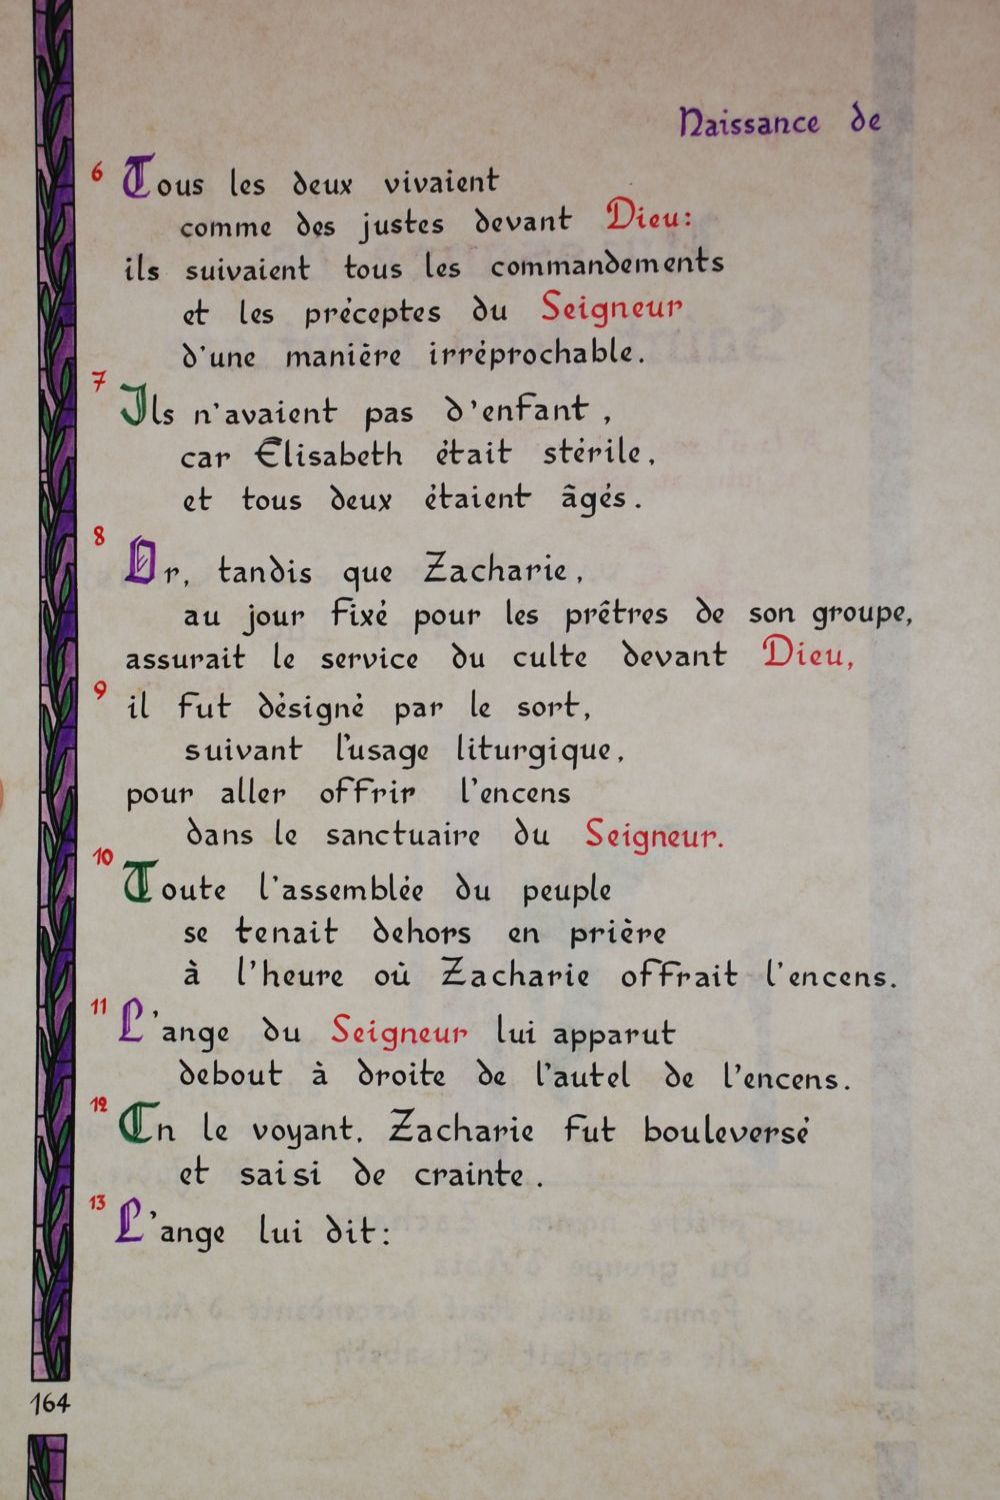 Naissance de
6 Tous les deux vivaient
comme des justes devant Dieu:
ils suivaient tous les commandements
et les préceptes du Seigneur
d'une manière irréprochable.
7 Ils n'avaient pas d'enfant,
car Élisabeth était stérile,
et tous deux étaient âgés.
8 Or, tandis que Zacharie,
au jour fixé pour les prêtres de son groupe,
assurait le service du culte devant Dieu,
9 il fut désigné par le sort,
suivant l'usage liturgique,
pour aller offrir l'encens
dans le sanctuaire du Seigneur.
10 Toute l'assemblée du peuple
se tenait dehors en prière
à l'heure où Zacharie offrait l'encens.
11 L'ange du Seigneur lui apparut
debout à droite de l'autel de l'encens.
12 En le voyant, Zacharie fut bouleversé
et saisi de crainte.
13 L'ange lui dit:
164